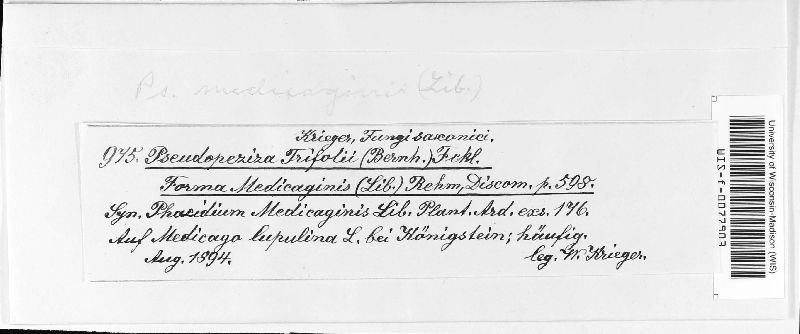 Ps. medicaginis (Lib.)
Krieger, Fungi saxonici.
975. Pseudopeziza Trifolii (Bernh.) Fckl.
Forma Medicaginis (Lib.) Rehm, Discom. p. 598.
Syn. Phacidium Medicaginis Lib. Plant. Ard. exs. 176.
Auf Medicago lupulina L. bei Königstein; häufig.
Aug. 1894. leg. W. Krieger.
WIS-f-0077903
University of Wisconsin-Madison (WIS)